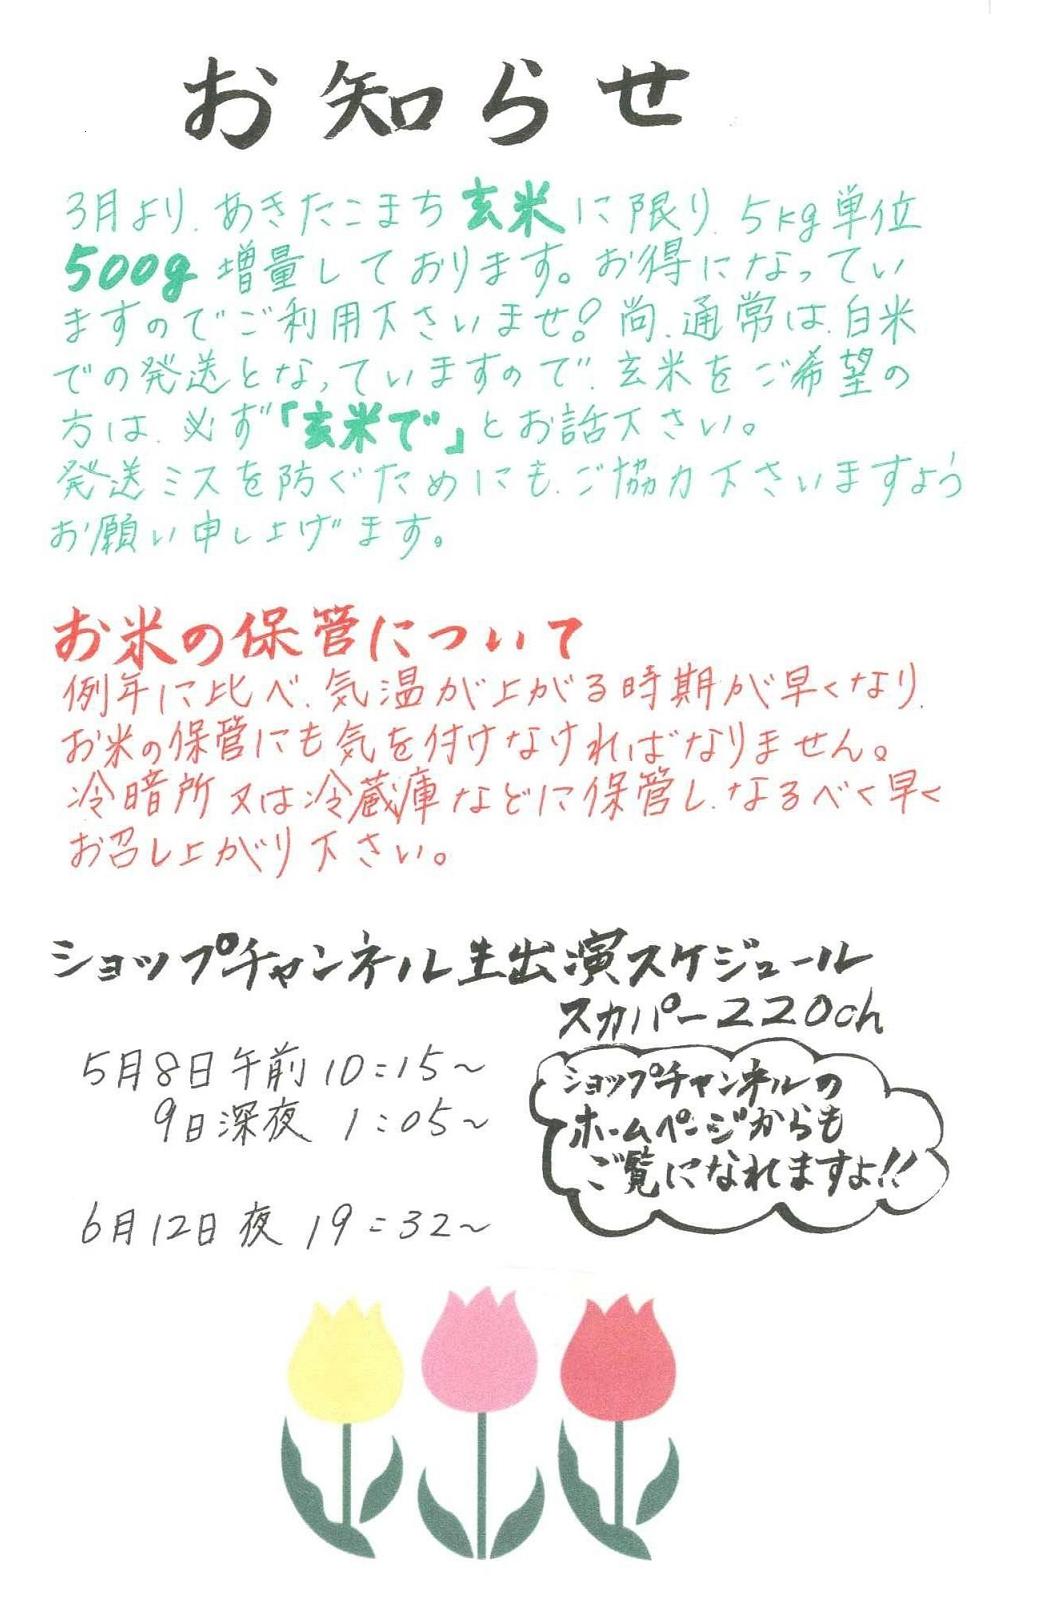 お知らせ
3月より、あきたこまち玄米に限り、5kg単位
500g増量しております。お得になってい
ますのでご利用下さいませ!尚、通常は、白米
での発送となっていますので、玄米をご希望の
方は、必ず「玄米で」とお話下さい。
発送ミスを防ぐためにも、ご協力下さいますよう
お願い申し上げます。
お米の保管について
例年に比べ、気温が上がる時期が早くなり、
お米の保管にも気を付けなければなりません。
冷暗所又は冷蔵庫などに保管し、なるべく早く
お召し上がり下さい。
ショップチャンネル生出演スケジュール
スカパー220ch
5月8日午前10:15~
9日深夜 1:05~
6月12日夜 19:32~
ショップチャンネルの
ホームページからも
ご覧になれますよ!!